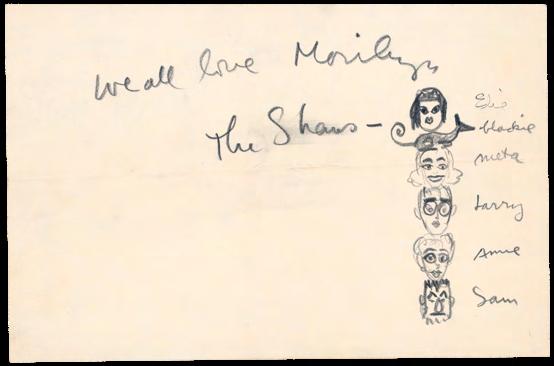 We all love Marilyn
The Shaws -
Edie
blackie
meta
Larry
Anne
Sam